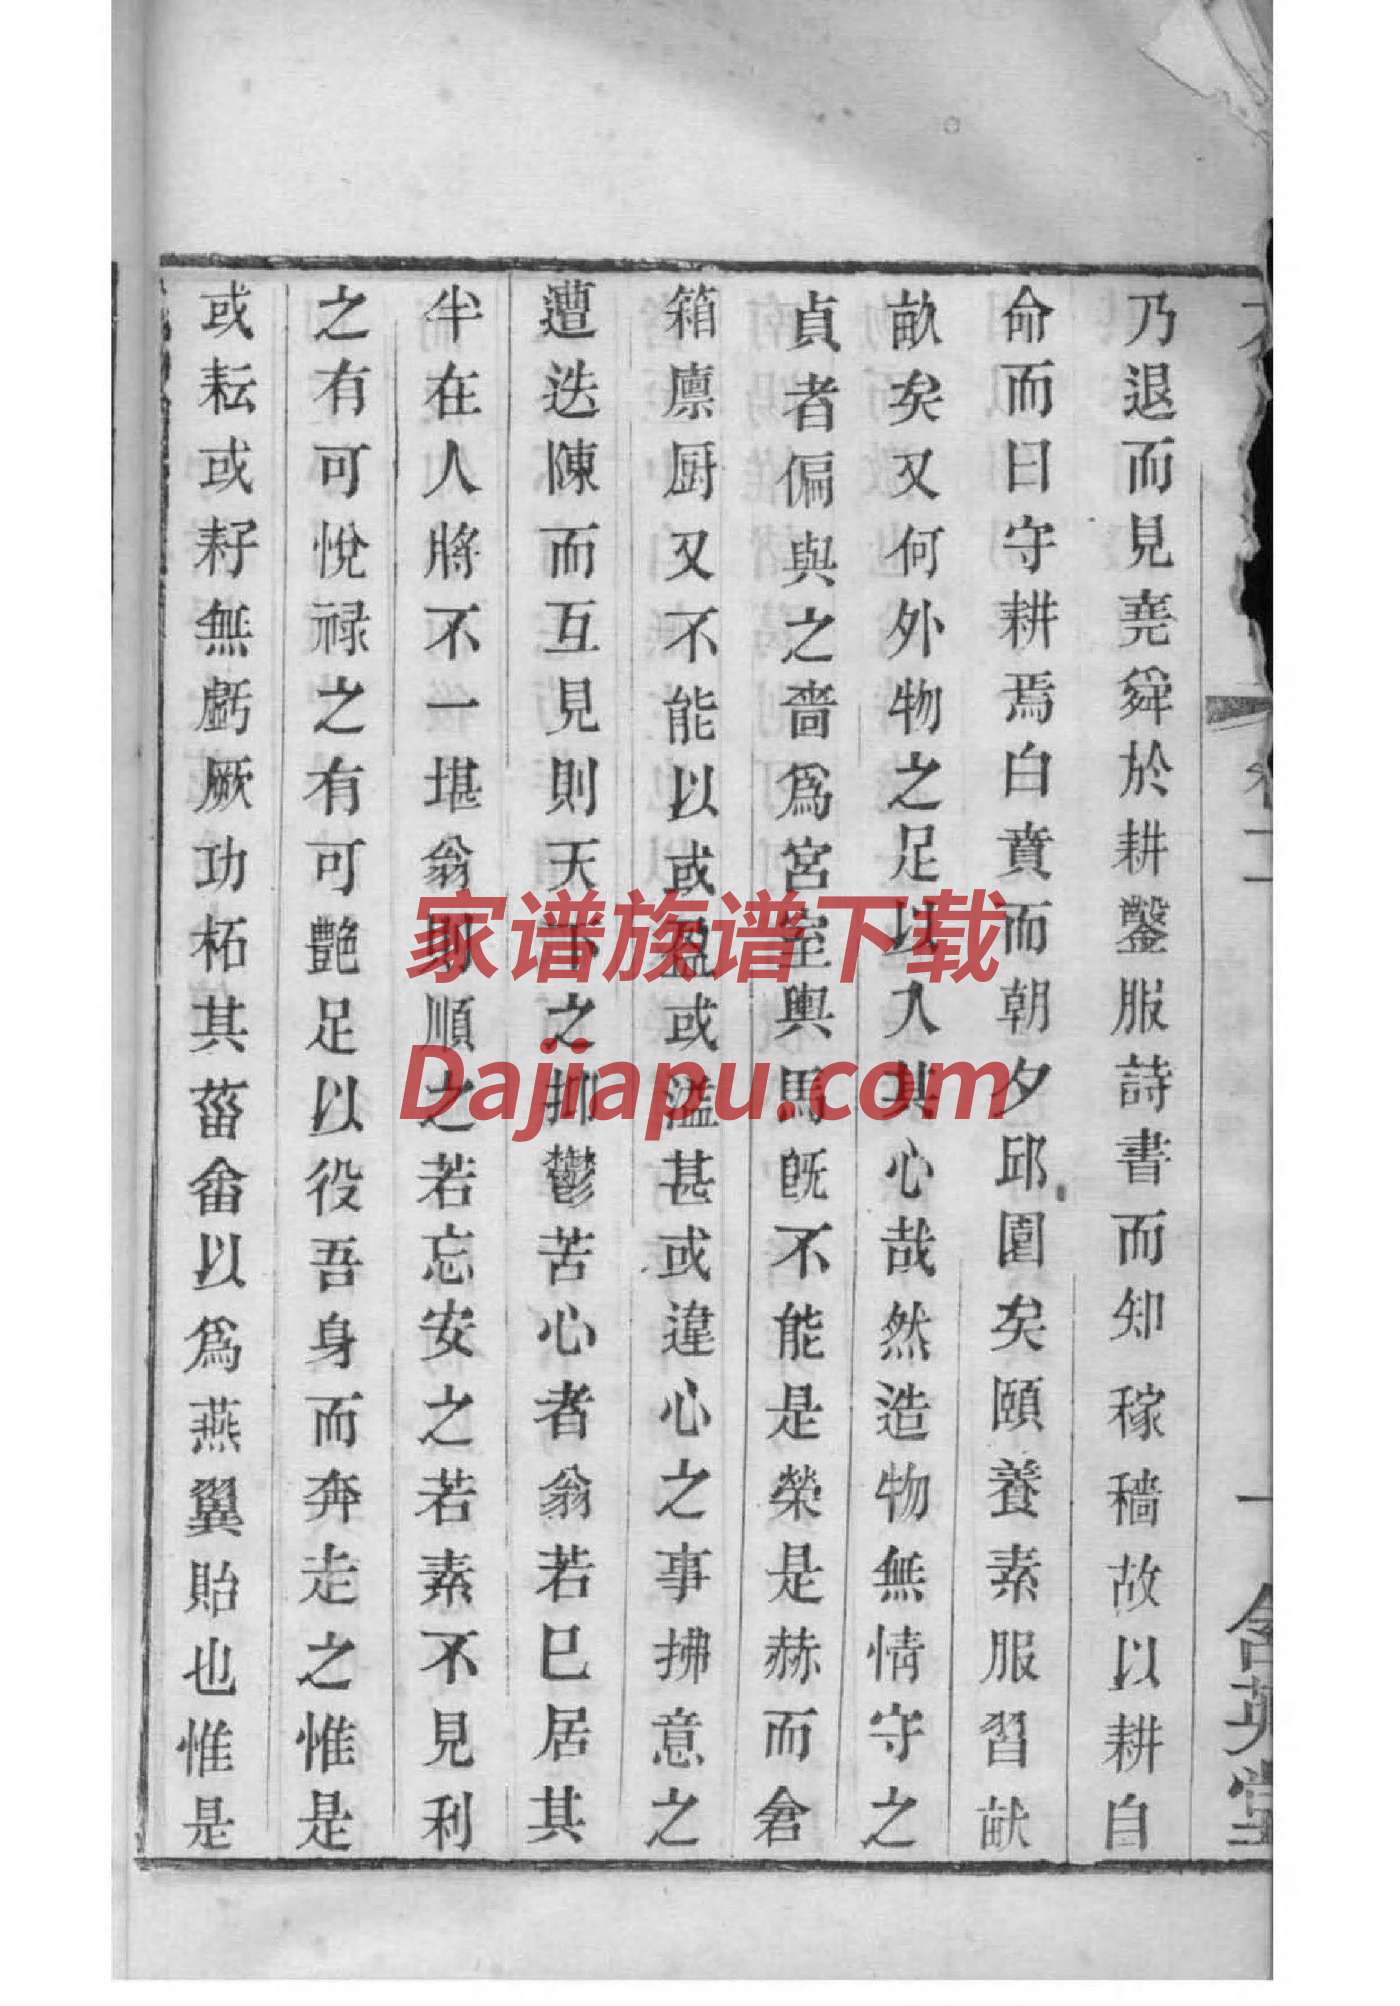 乃退而見堯舜於耕鑿服詩書而知稼穡故以耕自
命而曰守耕焉白賁而朝夕邱園矣頤養素服習畎
畝矣又何外物之足以人其心哉然造物無情守之
貞者偏與之嗇爲宮室輿馬旣不能是榮是赫而倉
箱廪厨又不能以或盈或濫甚或違心之事拂意之
遭迭陳而互見則天下之抑鬱苦心者翁若已居其
半在人將不一堪翁則順之若忘安之若素不見利
之有可悅禄之有可艷足以役吾身而奔走之惟是
或耘或耔無虧厥功柘其菑畬以爲燕翼貽也惟是
含英堂
家谱族谱下载
Dajiapu.com